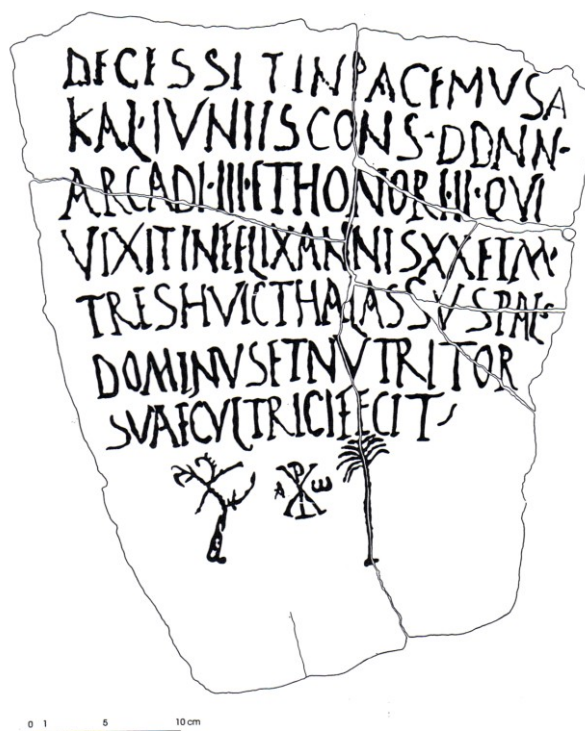 DECESSIT IN PACE MVSA
KAL·IVNIIS CONS·DDNN·
ARCADI·III·ET HONORI·II·QVI
VIXIT INFELIX ANNIS XX ET M·
TRES HVIC THALASSVS PAL·
DOMINVS ET NVTRITOR
SVAE CVLTRICI FECIT
A ☧ ω
0 1 5 10 cm